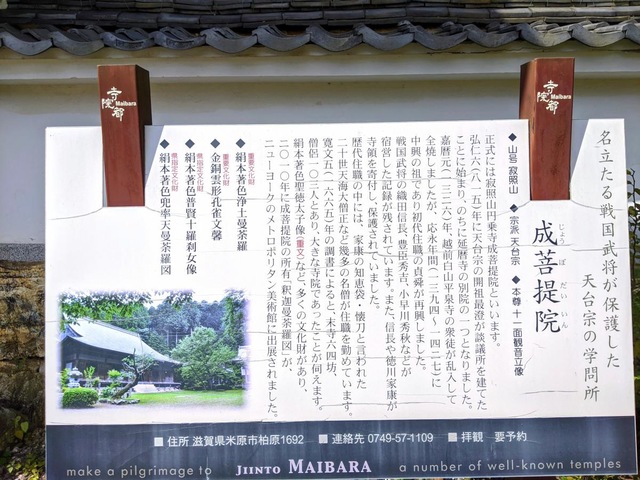 寺院 Maibara 都
寺院 Maibara 都
名立たる戦国武将が保護した
天台宗の学問所
じょう ぼ だい いん
成菩提院
◆山号 寂照山 ◆宗派 天台宗 ◆本尊 十一面観音立像
正式には寂照山円乗寺成菩提院といいます。
弘仁六(八一五)年に天台宗の開祖最澄が談議所を建てた
ことに始まり、のちに延暦寺の別院の一つとなりました。
嘉暦元(一三二六)年、越前白山平泉寺の衆徒が乱入して
全焼しましたが、応永年間(一三九四〜一四二七)に
中興の祖であり初代住職の貞舜が再興しました。
戦国武将の織田信長、豊臣秀吉、小早川秀秋などが
宿営した記録が残されています。また、信長や徳川家康が
寺領を寄付し、保護されていました。
歴代住職の中には、家康の知恵袋・懐刀と言われた
二十世天海大僧正など幾多の名僧が住職を勤めています。
寛文五(一六六五)年の調書によると、末寺六四坊、
僧侶一〇三人とあり、大きな寺院であったことが伺えます。
絹本著色聖徳太子像(重文)など、多くの文化財があり、
二〇一〇年に成菩提院の所有「釈迦曼荼羅図」が、
ニューヨークのメトロポリタン美術館に出展されました。
重要文化財
◆絹本著色浄土曼荼羅
重要文化財
◆金銅雲形孔雀文磬
県指定文化財
◆絹本著色普賢十羅刹女像
県指定文化財
◆絹本著色兜率天曼荼羅図
■住所 滋賀県米原市柏原1692 ■連絡先 0749-57-1109 ■拝観 要予約
make a pilgrimage to JIINTO MAIBARA a number of well-known temples